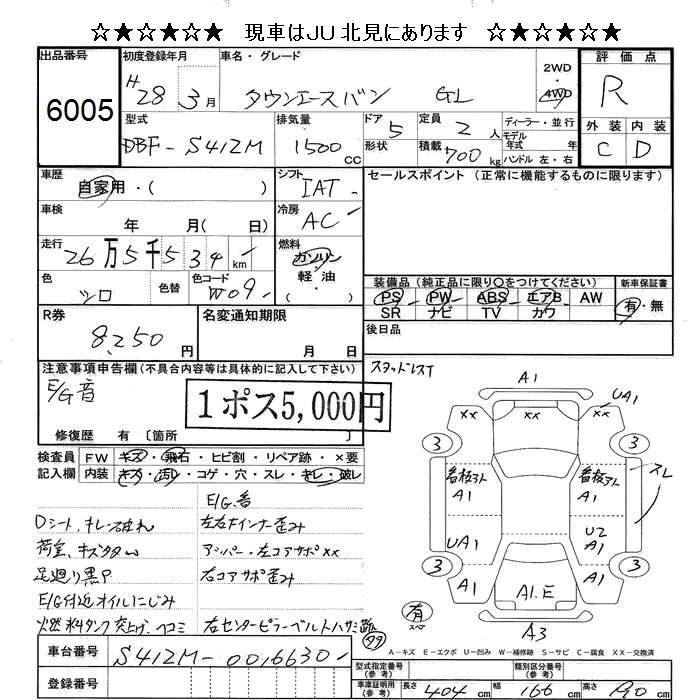 ☆★☆★☆★ 現車はJU北見にあります ☆★☆★☆★
出品番号
6005
初度登録年月
H28 3月
車名・グレード
タウンエースバン GL
2WD
4WD
評価点
R
外装 内装
C D
型式
DBF-S412M
排気量
1500 cc
ドア 5
形状
定員 2人
積載 700 kg
ディーラー・並行
モデル
年式 年
ハンドル 左・右
車歴
自家用・( )
シフト
IAT
セールスポイント (正常に機能するものに限ります)
車検
年 月( 日)
冷房
AC
走行
26万5千534 km
燃料
ガソリン
軽・油
( )
色
シロ
色替
色コード
W09
装備品 (純正品に限り○をつけてください)
PS PW ABS エアB AW
SR ナビ TV カワ
新車保証書
有・無
R券
8,250 円
名変通知期限
月 日
後日品
スタッドレスT
注意事項申告欄 (不具合内容等は具体的に記入して下さい)
E/G音
1ポス5,000円
修復歴 有〔箇所 〕
検査員
記入欄
FW キズ・飛石・ヒビ割・リペア跡・×要
内装 キズ・汚れ・コゲ・穴・スレ・キレ・破れ
E/G.音
Dシート.キレ.破れ
左右Fインナー歪み
荷室.キズ多い
アッパー・左コアサポXX
足廻り黒P
右コアサポ歪み
E/G付近オイルにじみ
燃料タンク突上げ.ヘコミ
右センターピラーベルトハサミ跡
A1
XX XX
UA1
3 3
看板アト A1
看板アト A1
スレ
UA1
U2 A1
3 3
A1
A1
A1.E
有
スペア
A3
A-キズ E-エクボ U-凹み W-補修跡 S-サビ C-腐食 XX-交換済
車台番号
S412M-0016630
登録番号
型式指定番号
(参考)
類別区分番号
(参考)
車庫証明用
(参考)
長さ 404 cm
幅 166 cm
高さ 190 cm